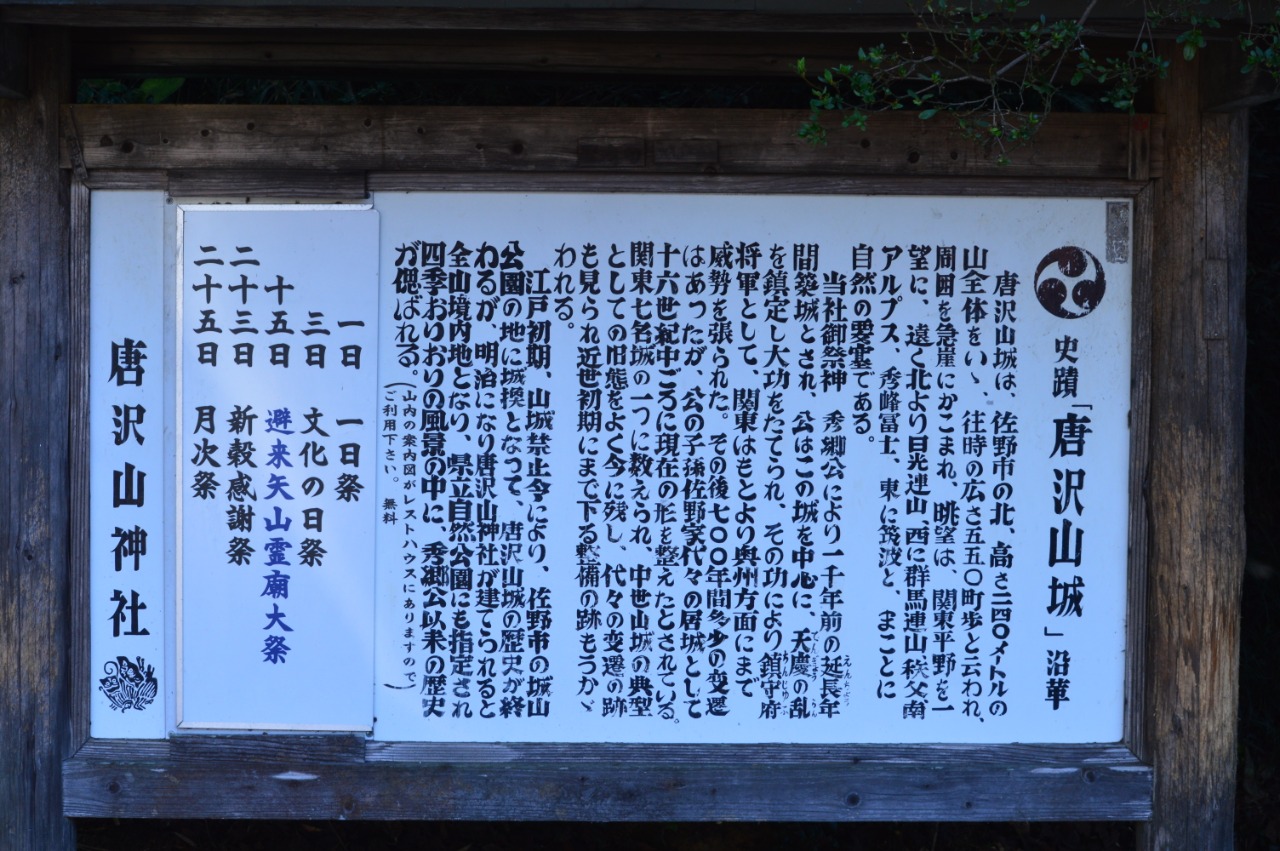 史蹟「唐沢山城」沿革
唐沢山城は、佐野市の北、高さ二四〇メートルの
山全体をいゝ、往時の広さ五五〇町歩と云われ、
周囲を急崖にかこまれ、眺望は、関東平野を一
望に、遠く北より日光連山、西に群馬連山、秩父南
アルプス、秀峰富士、東に筑波と、まことに
自然の要塞である。
当社御祭神　秀郷公により一千年前の延長年
えんちょう
間築城とされ、公はこの城を中心に、天慶の乱
てんぎょう　らん
を鎮定し大功をたてられ、その功により鎮守府
ちんじゅふ
将軍として、関東はもとより奥州方面にまで
威勢を張られた。その後七〇〇年間多少の変遷
はあったが、公の子孫佐野家代々の居城として
十六世紀中ごろに現在の形を整えたとされている。
関東七名城の一つに数えられ、中世山城の典型
としての旧態をよく今に残し、代々の変遷の跡
も見られ近世初期にまで下る整備の跡もうかゞ
われる。
江戸初期、山城禁止令により、佐野市の城山
公園の地に城換となって、唐沢山城の歴史が終
わるが、明治になり唐沢山神社が建てられると
全山境内地となり、県立自然公園にも指定され
四季おりおりの風景の中に、秀郷公以来の歴史
が偲ばれる。
（山内の案内図がレストハウスにありますので）
ご利用下さい。　無料
一日　一日祭
三日　文化の日祭
十五日　避来矢山霊廟大祭
二十三日　新穀感謝祭
二十五日　月次祭
唐沢山神社